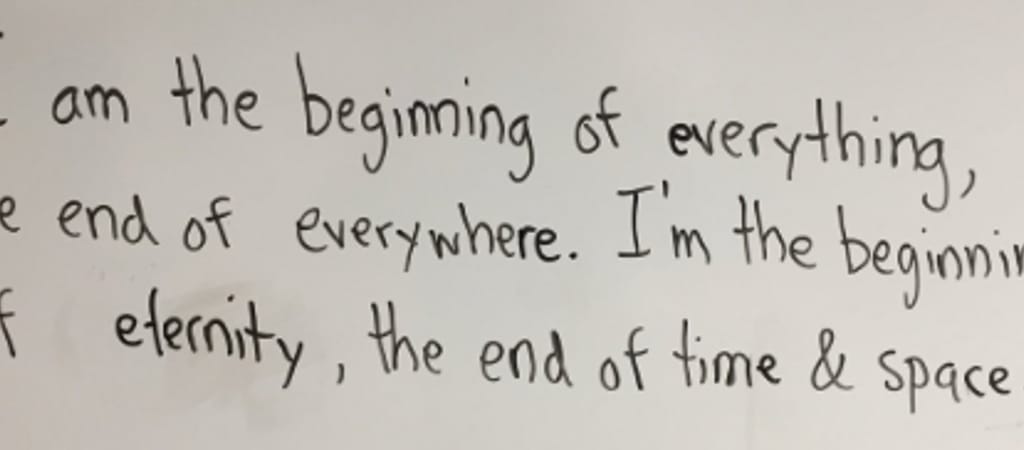 I am the beginning of everything,
e end of everywhere. I'm the beginnin
f eternity, the end of time & space